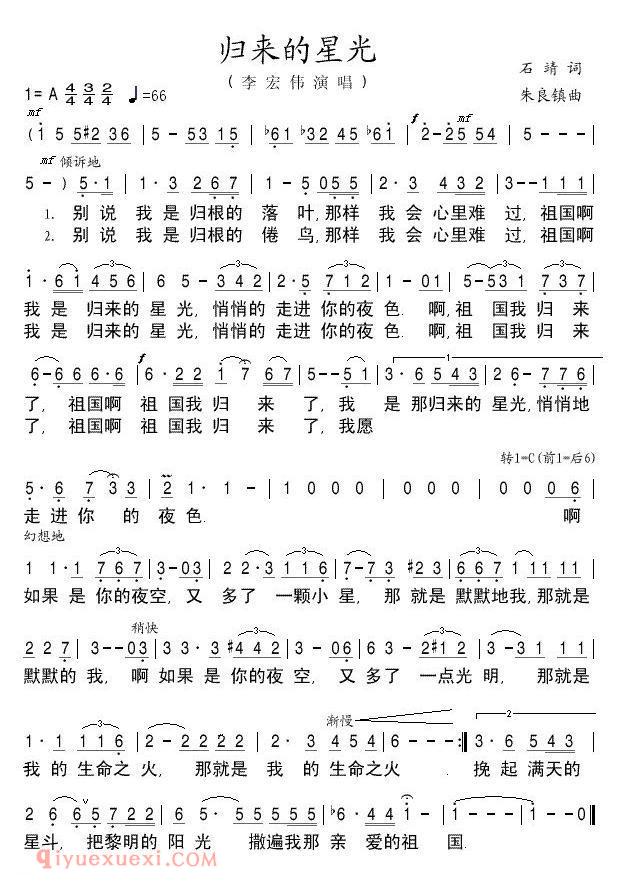 归来的星光
(李宏伟演唱)
石靖 词
1=A 4/4 3/4 2/4 ♩=66
朱良镇曲
mf mf
(i 5 5#2 36 | 5-53 15 | b61 b3245 b61 | 2-2554 | 5---|
mf 倾诉地
5-) 5·1 | 1·3 2 67 | 1-5 055 | 2·3 432 | 3--111 |
1. 别说 我是归根的 落 叶,那样 我会心里难 过,祖国啊
2. 别说 我是归根的 倦 鸟,那样 我会心里难 过,祖国啊
1·61 456 | 65-3 234 | 2·5 712 | 1-01 | 5-531 737 |
我是 归来的 星 光,悄悄的 走进 你的夜 色. 啊,祖 国我 归 来
我是 归来的 星 光,悄悄的 走进 你的夜 色. 啊,祖 国我 归 来
f
6-66 66·6 | 6·622 1767 | 5--51 | 3·6 543 | 26-776 |
了, 祖国啊 祖 国我 归 来 了,我 是 那归来的 星光,悄悄地
了, 祖国啊 祖 国我 归 来 了,我愿
转1=C(前1=后6)
5·6 7 3 3 | 2 1· | 1--- | 1000 | 000 | 0006 |
走进 你 的 夜 色. 啊
幻想地
1 1·1 767 | 3-03 | 22·3 111 | #23 67 | 3-367 |
如果 是 你的夜 空, 又 多了 一颗小 星, 那 就是 默默地我,那就是
稍快
227 | 3--03 | 33·3 #432 | 3-06 | 63 2#12 | 3-31 11 |
默默的 我, 啊 如果 是 你的夜 空, 又 多了 一点光 明, 那就是
渐慢
1·1 116 | 2-222 | 5·5 554 | #456 | 6---:| 3·6 543 |
我 的 生命之 火, 那就是 我 的 生命之火 . 挽起 满天的
26 65722 | 555·5 | 32323 | b6·4461 | 1---| 1-0‖
星斗, 把黎明的 阳 光 撒遍我那 亲 爱的祖 国.
qiyuexuexi.com